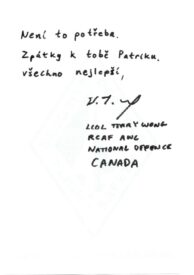 Není to potřeba.
Zpátky k tobě Patriku.
všechno nejlepší,
LCOL TERRY WONG
RCAF AWC
NATIONAL DEFENCE
CANADA